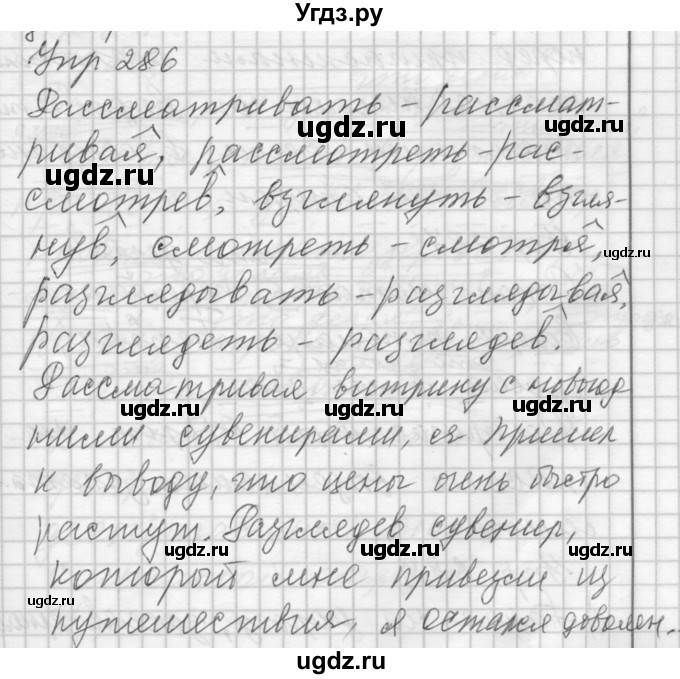 Угдз.ру
Упр 286
Рассматривать – рассмат-
ривая, рассмотреть – рас-
смотрев, взглянуть – взгля-
нув, смотреть – смотря,
разглядывать – разглядывая,
разглядеть – разглядев.
Рассматривая витрину с новогод
ними сувенирами, я пришел
к выводу, что цены очень быстро
растут. Разглядев сувенир,
который мне привезли из
путешествия, я остался доволен.
ugdz.ru
ugdz.ru
ugdz.ru
ugdz.ru
ugdz.ru
ugdz.ru
ugdz.ru
ugdz.ru
ugdz.ru
ugdz.ru
ugdz.ru
ugdz.ru
ugdz.ru